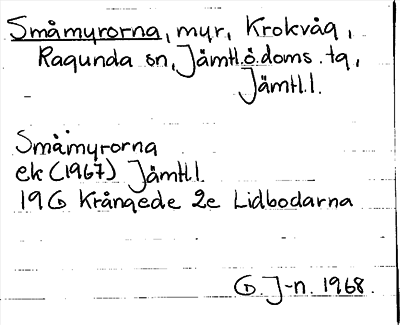 Småmyrorna, myr, Krokvåg,
Ragunda sn, Jämtl.ö.doms.tg,
Jämtl.l.
Småmyrorna
ek (1967) Jämtl.l.
19 G Krångede 2e Lidbodarna
G. J-n. 1968.